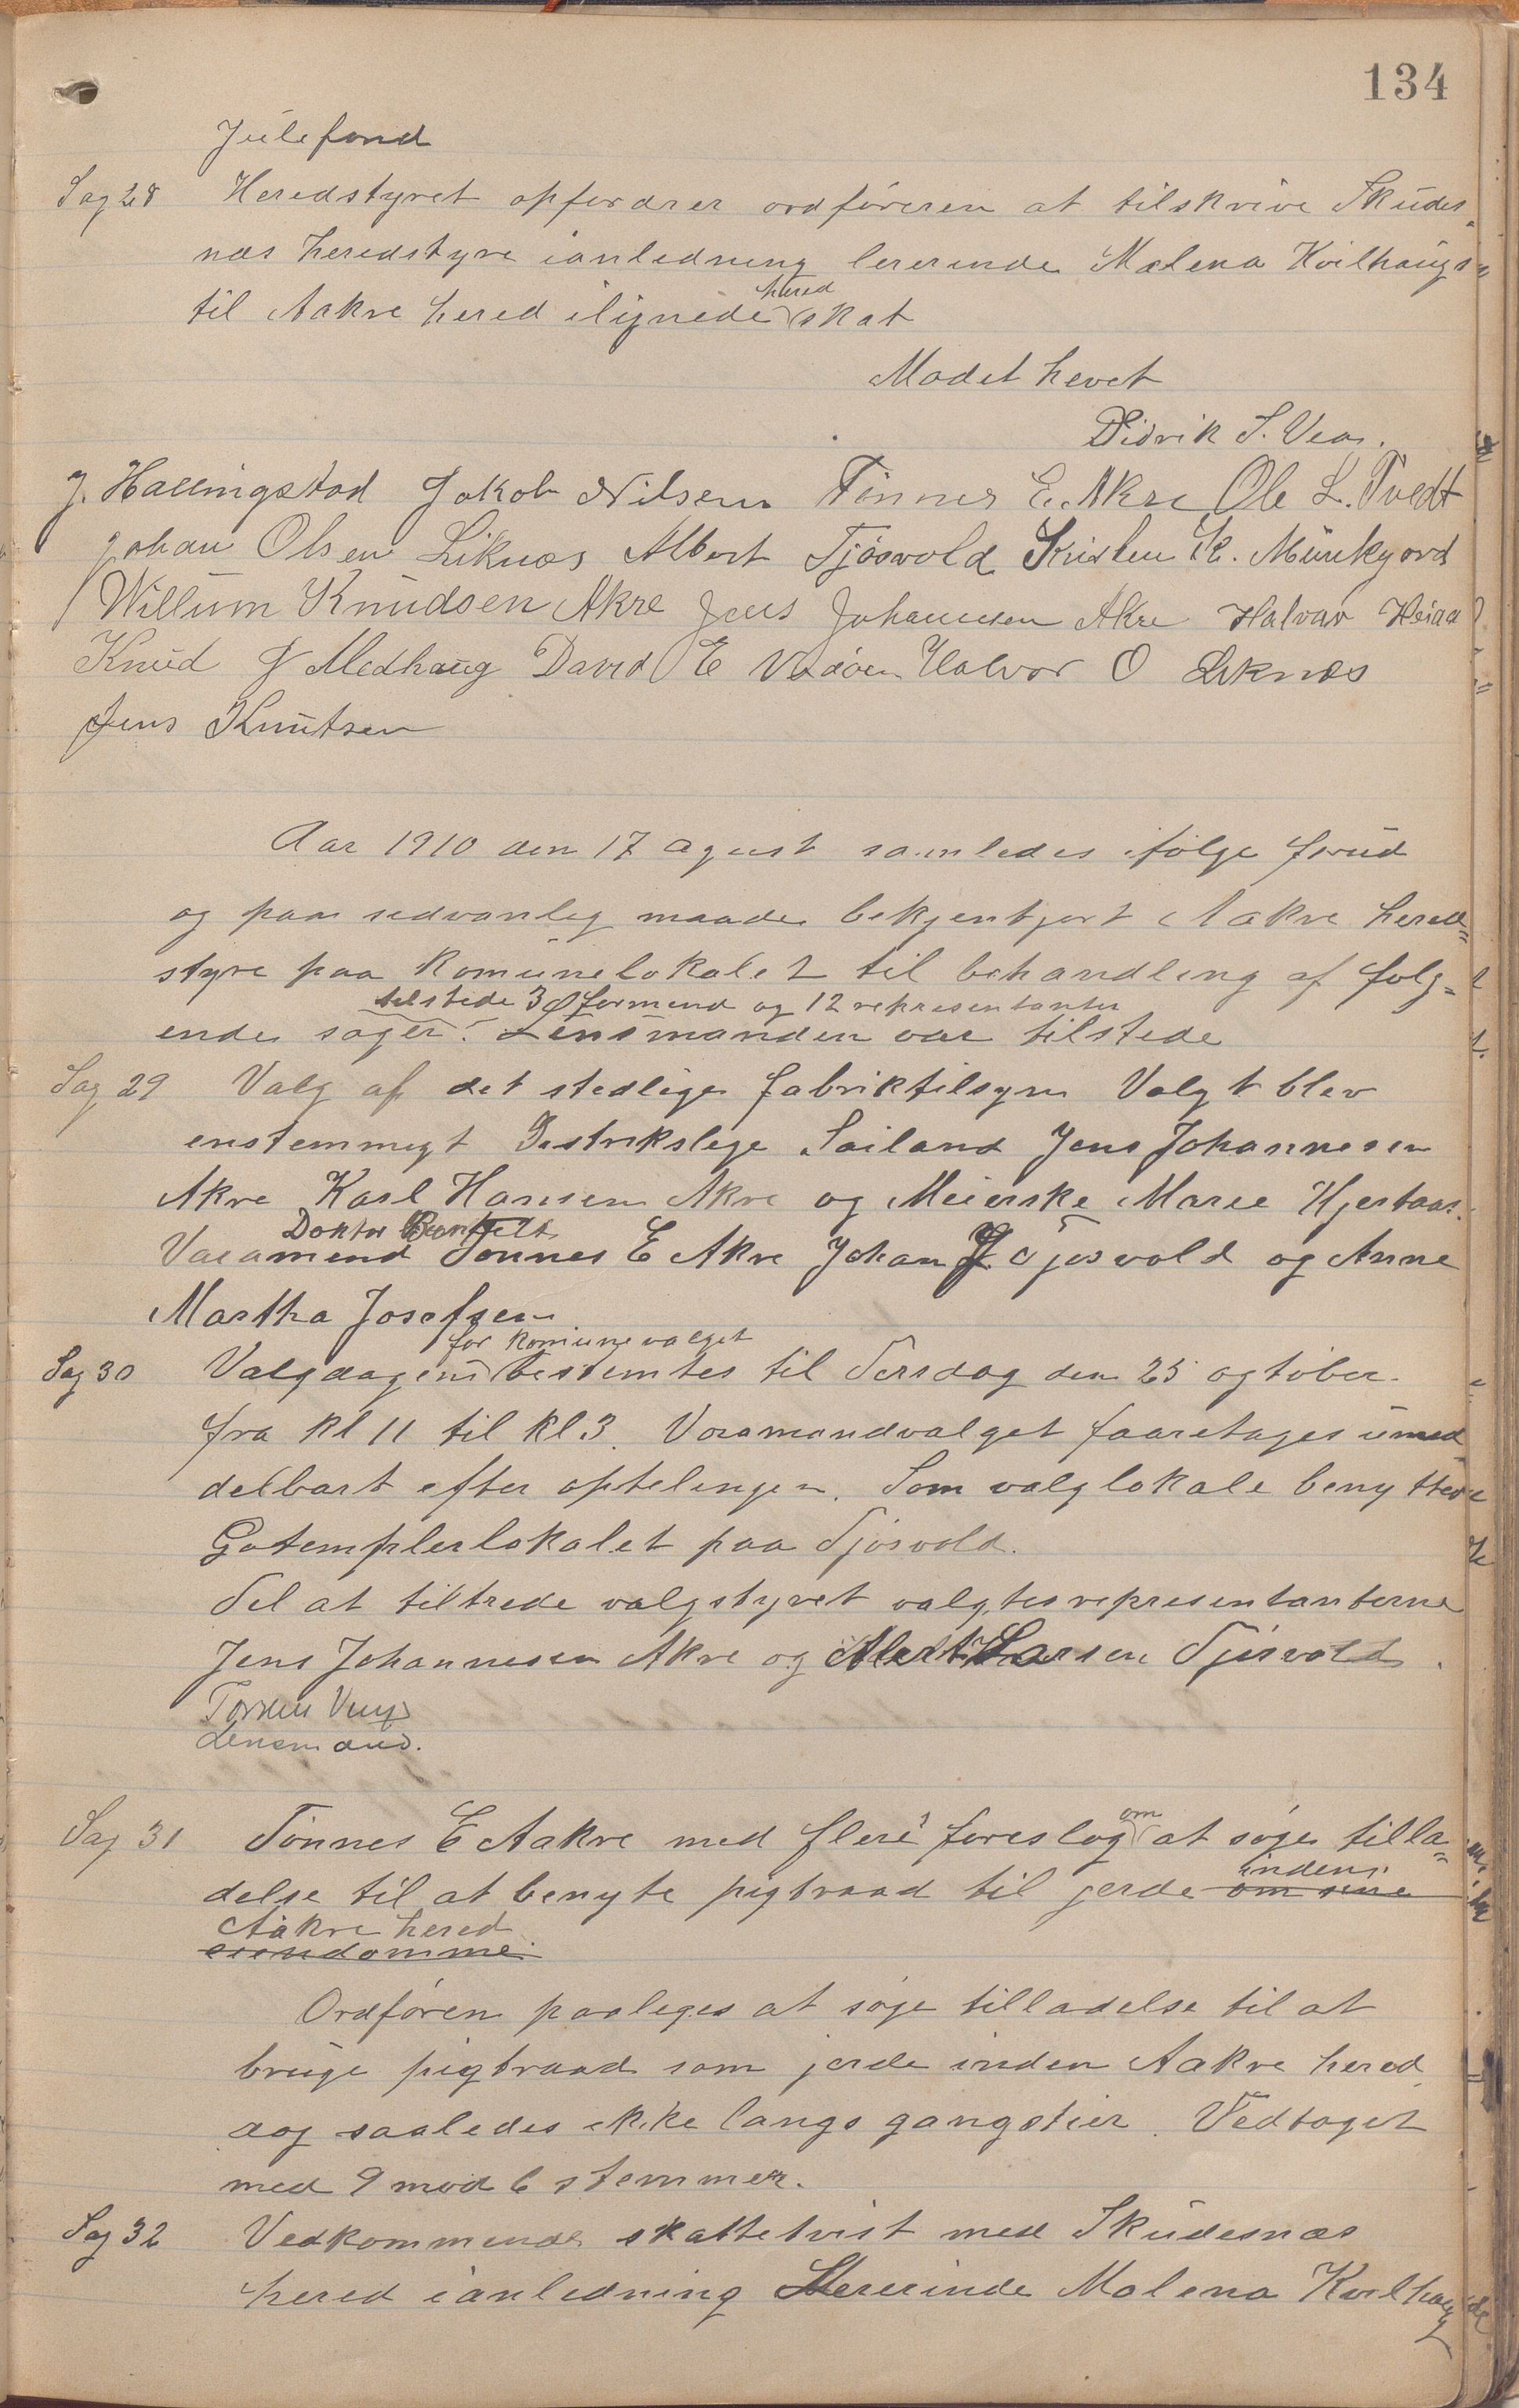 134
Julefond
Sag 28 Heredstyret opfordrer ordføreren at tilskrive Skudes-
næs heredstyre ianledning lererinde Malena Kvilhaugs
til Aakre hered ilignede hered skat
Mødet hevet
Didrik S. Vea.
J. Hallingstad Jakob Nilsen Tønnes E. Akre Ole L. Tvedt
Johan Olsen Liknes Albert Tjøsvold Kristen K. Munkejord
Willum Knudsen Akre Jens Johannesen Akre Halvar Heiaa
Knud J Medhaug David E Vedøen Halvor O Liknes
Jens Knutsen
Aar 1910 den 17 agust samledes ifølge forud
og paa sedvanlig maade bekjentjort Aakre hered=
styre paa Komunelokalet til behandling af følg-
tilstede 3 formend og 12 representanter
ende sager. Lensmanden var tilstede
Sag 29 Valg af det stedlige fabriktilsyn Valgt blev
enstemmigt Distrikslege Sailand Jens Johannesen
Akre Karl Hansen Akre og Meierske Marie Hjertaas.
Doktor
Varamend Tønnes E Akre Johan J Tjøsvold og Anne
Martha Josefsen
for komunevalget
Sag 30 Valgdagen bestemtes til Tirsdag den 25 ogtober
fra kl 11 til kl 3. Varamandvalget faaretages umid
delbart efter optelingen. Som valglokale benyttes
Gotemplerlokalet paa Tjøsvold.
Til at tiltrede valgstyret valgtes representanterne
Jens Johannesen Akre og Albert Larsen Tjøsvold.
Torsten Veug
Lensmand.
Sag 31 Tønnes E Aakre med flere foreslog om at søge tilla=
delse til at benyte pigtraad til jerde om sine inden
Aakre hered
eiendomme.
Ordføren paaleges at søge tilladelse til at
bruge pigtraad som jerde inden Aakre hered
dog saaledes ikke langs gangstier. Vedtaget
med 9 mod 6 stemmer.
Sag 32 Vedkommende skattetvist med Skudesnæs
hered ianledning Lererinde Malena Kvilhaug